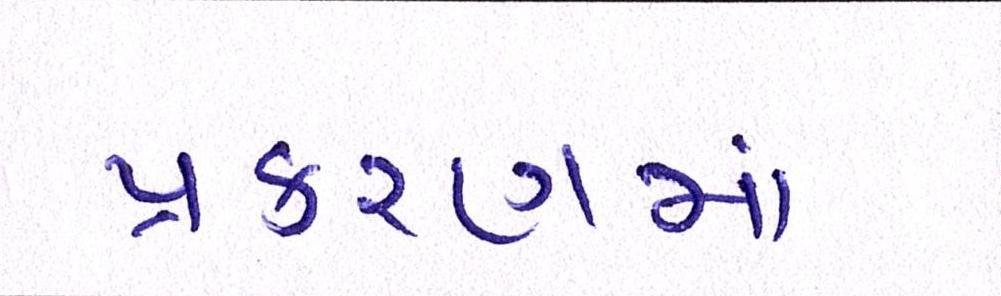 પ્રકરણમાં